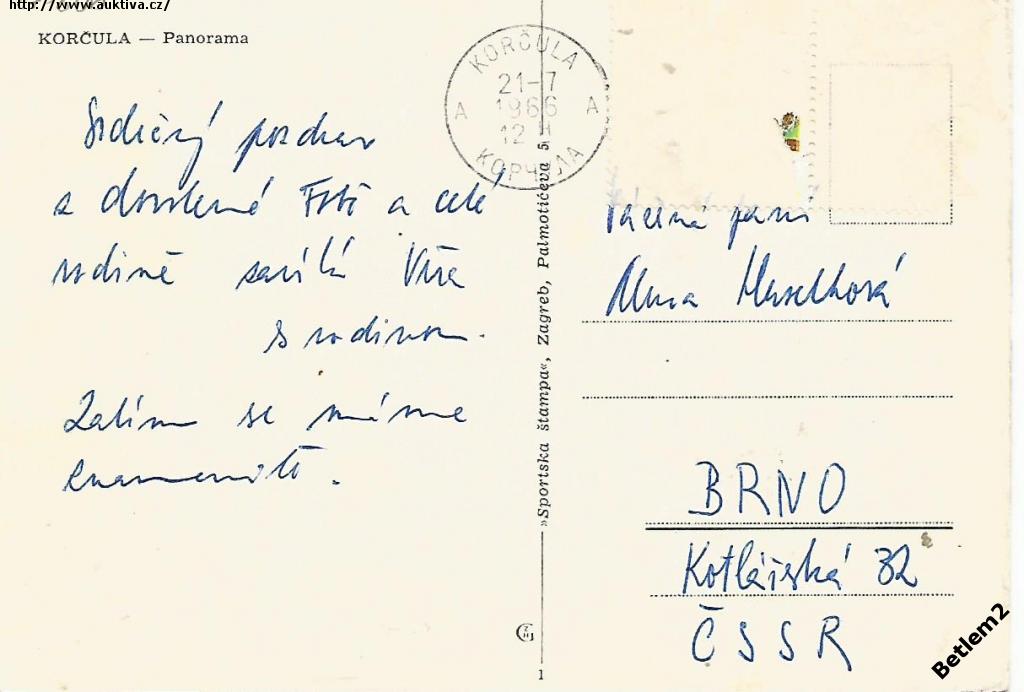 http://www.auktiva.cz/
KORČULA — Panorama
KORČULA
21-7
1966
12 H
A A
КОРЧУЛА
Srdečný pozdrav
z dovolené Tobě a celé
rodině zasílá Věra
s rodinou.
Zatím se máme
znamenitě.
»Sportska štampa«, Zagreb, Palmotićeva 5
Vážená paní
BRNO
Kotlářská 32
ČSSR
1
Betlem2